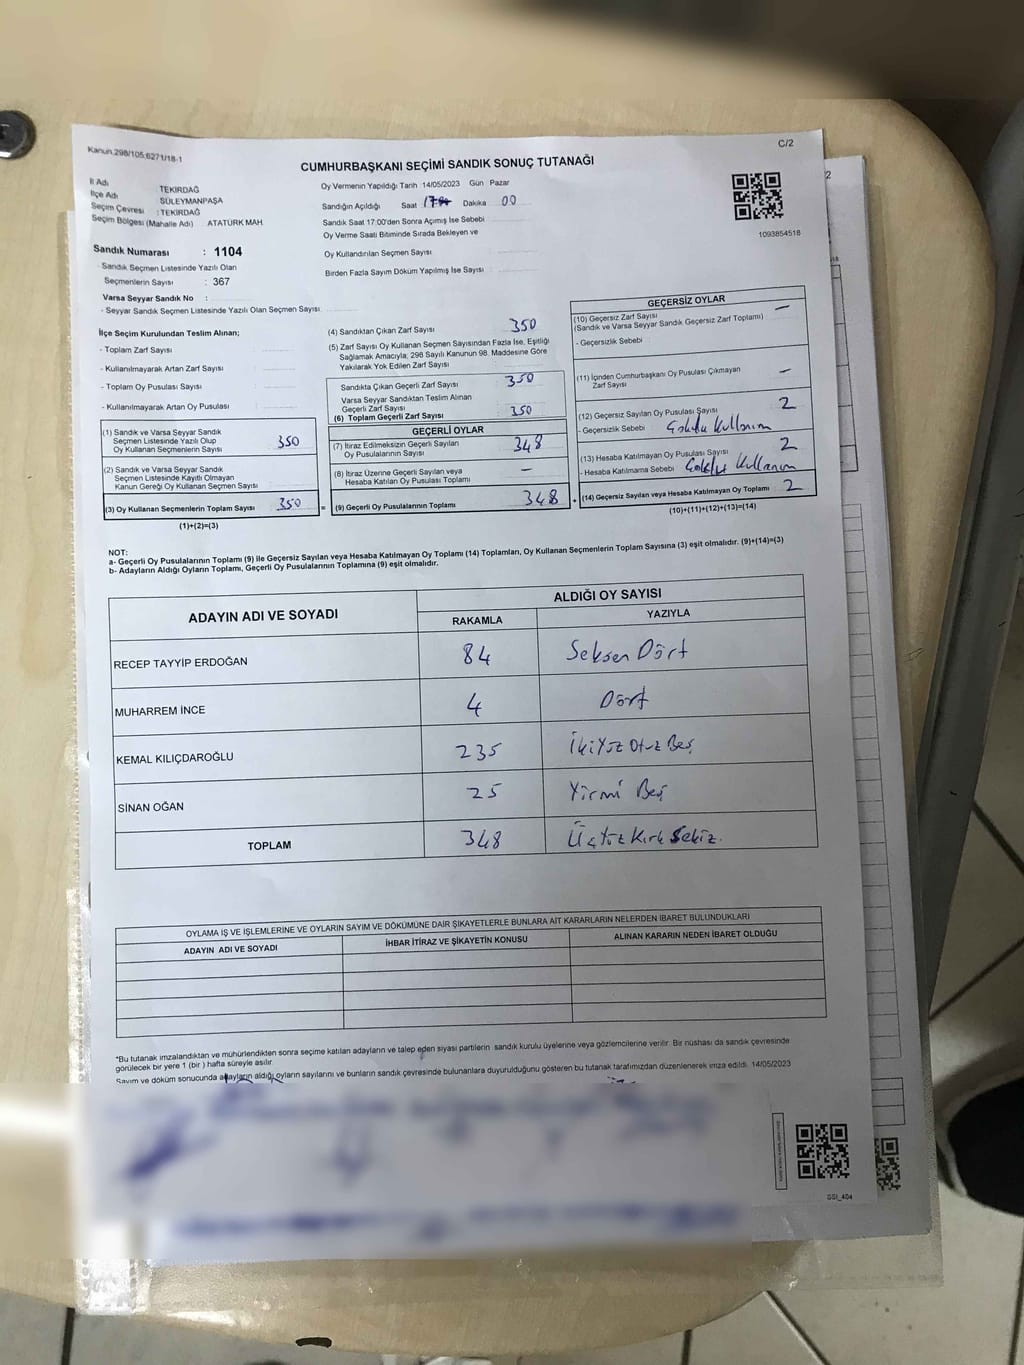 Kanun.298/105;6271/18-1
C/2
CUMHURBAŞKANI SEÇİMİ SANDIK SONUÇ TUTANAĞI
İl Adı : TEKİRDAĞ
İlçe Adı : SÜLEYMANPAŞA
Seçim Çevresi : TEKİRDAĞ
Seçim Bölgesi (Mahalle Adı) : ATATÜRK MAH
Sandık Numarası : 1104
- Sandık Seçmen Listesinde Yazılı Olan
Seçmenlerin Sayısı : 367
Varsa Seyyar Sandık No :
- Seyyar Sandık Seçmen Listesinde Yazılı Olan Seçmen Sayısı
Oy Vermenin Yapıldığı Tarih 14/05/2023 Gün Pazar
Sandığın Açıldığı Saat Dakika 00
Sandık Saat 17:00'den Sonra Açılmış İse Sebebi
Oy Verme Saati Bitiminde Sırada Bekleyen ve
Oy Kullandırılan Seçmen Sayısı
Birden Fazla Sayım Döküm Yapılmış İse Sayısı
1093854518
İlçe Seçim Kurulundan Teslim Alınan;
- Toplam Zarf Sayısı
- Kullanılmayarak Artan Zarf Sayısı
- Toplam Oy Pusulası Sayısı
- Kullanılmayarak Artan Oy Pusulası
(1) Sandık ve Varsa Seyyar Sandık
Seçmen Listesinde Yazılı Olup
Oy Kullanan Seçmenlerin Sayısı 350
(2) Sandık ve Varsa Seyyar Sandık
Seçmen Listesinde Kayıtlı Olmayan
Kanun Gereği Oy Kullanan Seçmen Sayısı
(3) Oy Kullanan Seçmenlerin Toplam Sayısı 350
(1)+(2)=(3)
(4) Sandıktan Çıkan Zarf Sayısı 350
(5) Zarf Sayısı Oy Kullanan Seçmen Sayısından Fazla İse, Eşitliği
Sağlamak Amacıyla; 298 Sayılı Kanunun 98. Maddesine Göre
Yakılarak Yok Edilen Zarf Sayısı
Sandıkta Çıkan Geçerli Zarf Sayısı 350
Varsa Seyyar Sandıktan Teslim Alınan
Geçerli Zarf Sayısı
(6) Toplam Geçerli Zarf Sayısı 350
GEÇERLİ OYLAR
(7) İtiraz Edilmeksizin Geçerli Sayılan
Oy Pusulalarının Sayısı 348
(8) İtiraz Üzerine Geçerli Sayılan veya
Hesaba Katılan Oy Pusulası Toplamı —
= (9) Geçerli Oy Pusulalarının Toplamı 348
GEÇERSİZ OYLAR
(10) Geçersiz Zarf Sayısı —
(Sandık ve Varsa Seyyar Sandık Geçersiz Zarf Toplamı)
- Geçersizlik Sebebi
(11) İçinden Cumhurbaşkanı Oy Pusulası Çıkmayan
Zarf Sayısı —
(12) Geçersiz Sayılan Oy Pusulası Sayısı 2
- Geçersizlik Sebebi Çoklu Kullanım
(13) Hesaba Katılmayan Oy Pusulası Sayısı 2
- Hesaba Katılmama Sebebi Çoklu Kullanım
+ (14) Geçersiz Sayılan veya Hesaba Katılmayan Oy Toplamı 2
(10)+(11)+(12)+(13)=(14)
NOT:
a- Geçerli Oy Pusulalarının Toplamı (9) ile Geçersiz Sayılan veya Hesaba Katılmayan Oy Toplamı (14) Toplamları, Oy Kullanan Seçmenlerin Toplam Sayısına (3) eşit olmalıdır. (9)+(14)=(3)
b- Adayların Aldığı Oyların Toplamı, Geçerli Oy Pusulalarının Toplamına (9) eşit olmalıdır.
ADAYIN ADI VE SOYADI
ALDIĞI OY SAYISI
RAKAMLA YAZIYLA
RECEP TAYYİP ERDOĞAN 84 Seksen Dört
MUHARREM İNCE 4 Dört
KEMAL KILIÇDAROĞLU 235 İkiYüz Otuz Beş
SİNAN OĞAN 25 Yirmi Beş
TOPLAM 348 ÜçYüz Kırk Sekiz.
OYLAMA İŞ VE İŞLEMLERİNE VE OYLARIN SAYIM VE DÖKÜMÜNE DAİR ŞİKAYETLERLE BUNLARA AİT KARARLARIN NELERDEN İBARET BULUNDUKLARI
ADAYIN ADI VE SOYADI İHBAR İTİRAZ VE ŞİKAYETİN KONUSU ALINAN KARARIN NEDEN İBARET OLDUĞU
*Bu tutanak imzalandıktan ve mühürlendikten sonra seçime katılan adayların ve talep eden siyasi partilerin sandık kurulu üyelerine veya gözlemcilerine verilir. Bir nüshası da sandık çevresinde
görülecek bir yere 1 (bir ) hafta süreyle asılır.
Sayım ve döküm sonucunda adayların aldığı oyların sayılarını ve bunların sandık çevresinde bulunanlara duyurulduğunu gösteren bu tutanak tarafımızdan düzenlenerek imza edildi. 14/05/2023
GSI_404